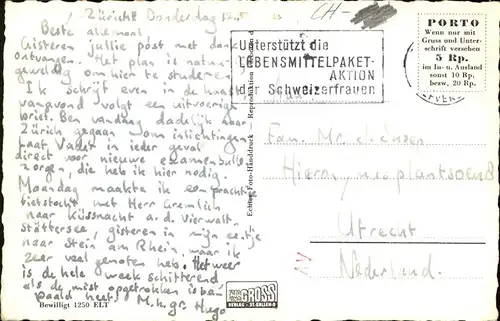 Zürich Donderdag
Beste allemaal,
Gisteren jullie post met dank
ontvangen. Het plan is natuur
geweldig om hier te studeren.
Ik schrijf even in de haast
vanavond volgt een uitvoerige
brief. Ben vandaag dadelijk naar
Zürich gegaan om inlichtingen
Laat Vader in ieder geval
direct voor nieuwe examenbul
zorgen, die heb ik hier nodig.
Maandag maakte ik een prachtige
fietstocht met Herr Gremlich
naar Küssnacht a. d. Vierwald-
stättersee, gisteren in mijn eentje
naar Stein am Rhein, waar ik
zeer veel genoten heb. Het weer
is de hele week schitterend
als de mist opgetrokken is be-
paald heet. M. h. gr. Hugo
Bewilligt 1250 ELT
Echte Foto-Handdruck — Reproduktion
GROSS
CH-
Unterstützt die
LEBENSMITTELPAKET-
AKTION
der Schweizerfrauen
PORTO
Wenn nur mit
Gruss und Unter-
schrift versehen
5 Rp.
im In- u. Ausland
sonst 10 Rp.
bezw. 20 Rp.
Fam. Mr.
Hieronymusplantsoen
Utrecht
Nederland.